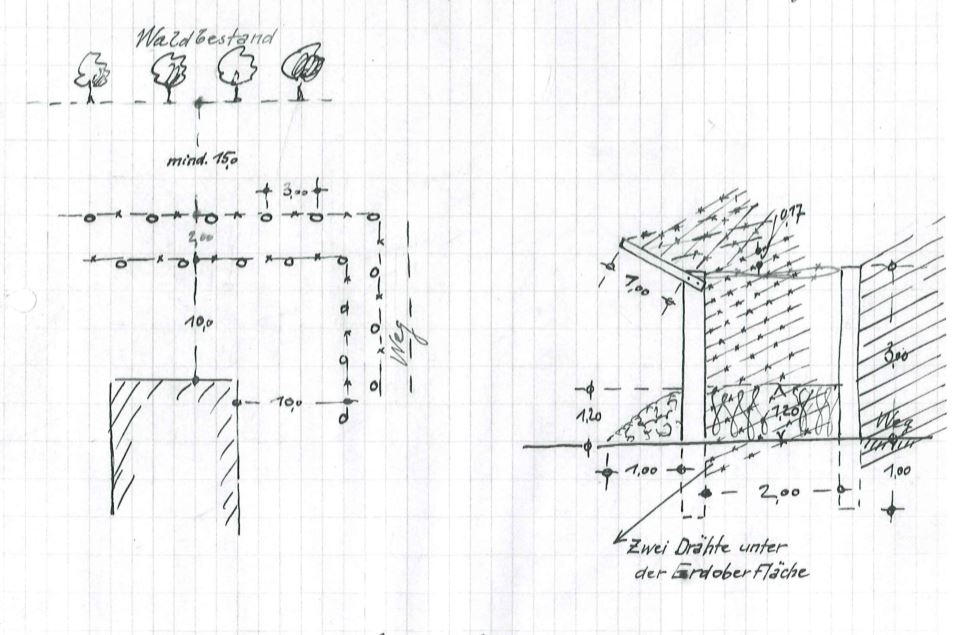 Waldbestand
mind. 15,0
3,00
2,00
10,0
Weg
10,0
0,17
1,00
3,00
1,20
1,20
Weg
1,00
2,00
1,00
Zwei Drähte unter
der Erdoberfläche